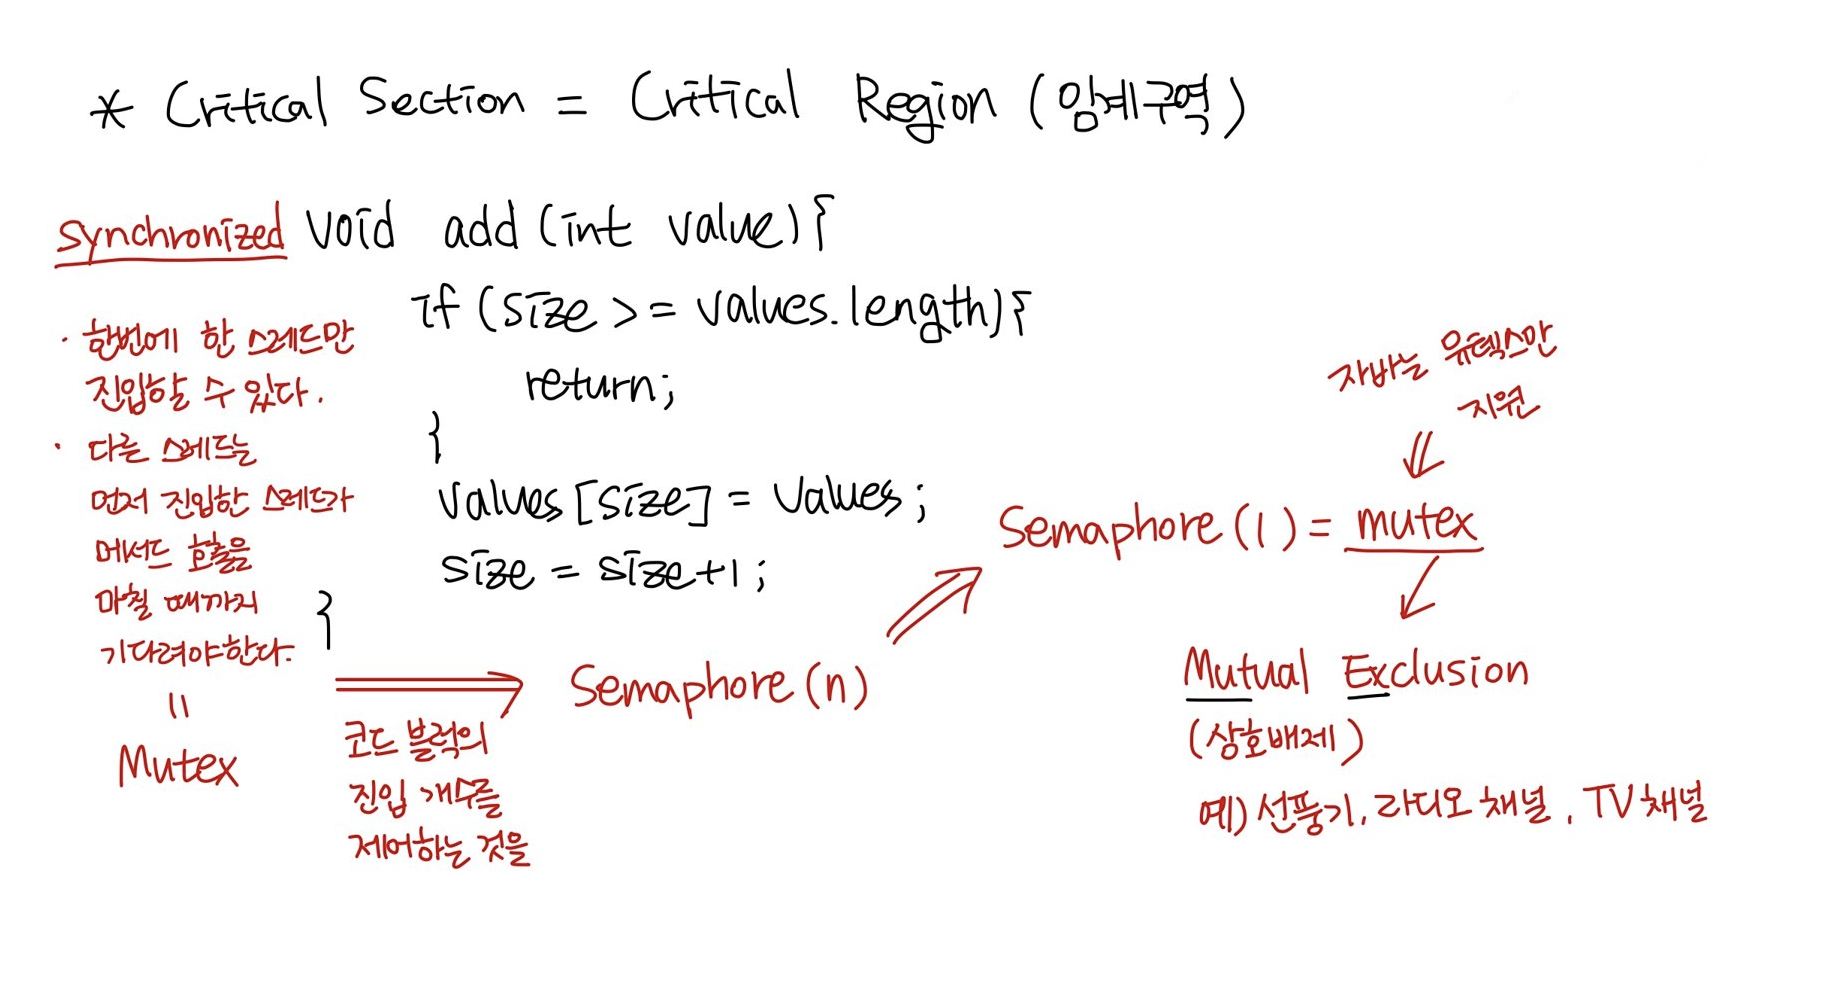 * Critical Section = Critical Region (임계구역)
synchronized void add (int value) {
if (size >= values.length) {
return;
}
values [size] = values;
size = size+1;
}
· 한번에 한 스레드만
진입할 수 있다.
· 다른 스레드는
먼저 진입한 스레드가
메서드 호출을
마칠 때까지
기다려야한다.
=
Mutex
코드 블럭의
진입 개수를
제어하는 것을
Semaphore (n)
Semaphore (1) = mutex
자바는 뮤텍스만
지원
Mutual Exclusion
(상호배제)
예) 선풍기, 라디오 채널, TV 채널